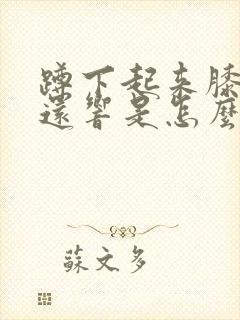 蹲下起来膝
還響是怎麼
蘇文多